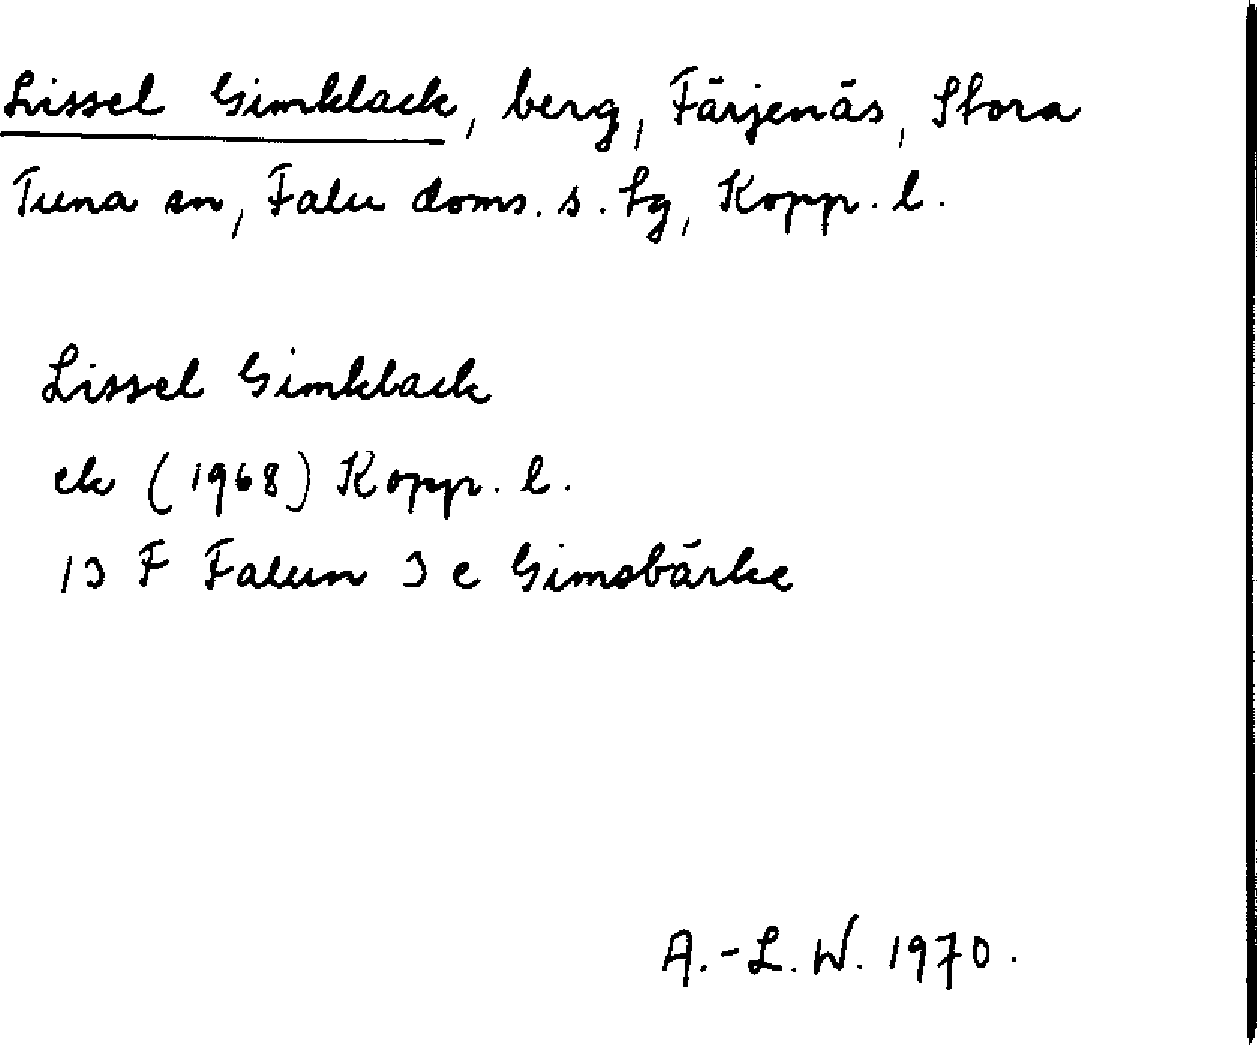 Lissel Gimklack, berg, Färjenäs, Stora
Tuna sn, Falu doms. s. tg, Kopp. l.
Lissel Gimklack
ek (1968) Kopp. l.
13 F Falun 3 c Gimsbärke
A.-L. W. 1970.